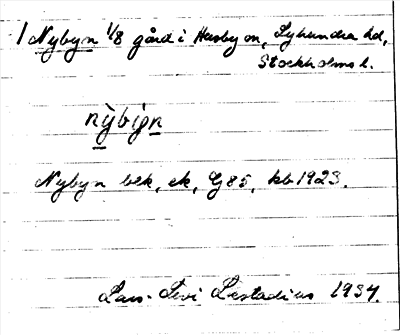 1 Nybyn 1/8 gård i Husby sn, Lyhundra hd,
Stockholms l.
nỳbi̇̀gn
Nybyn bek, ek, G85, kb 1923.
Lars-Levi Læstadius 1934.